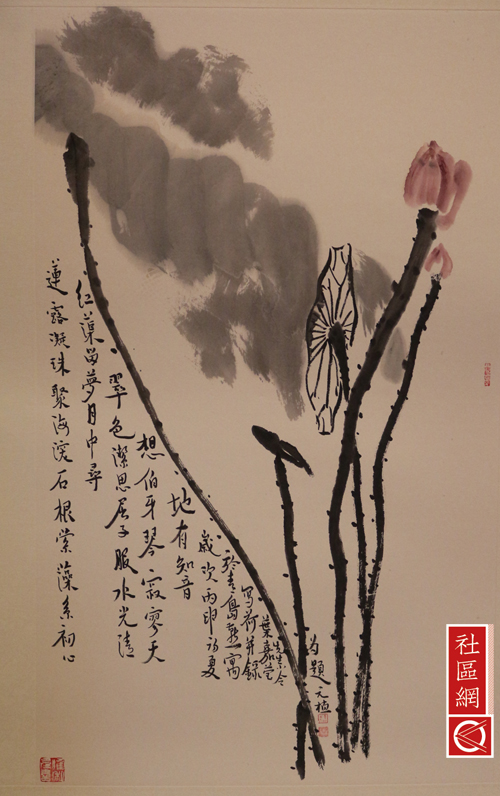 蓮露凝珠聚海深石根縈藻系初心
紅蕖留夢月中尋
翠色潔思屈子服水光清
想伯牙琴寂寥天
地有知音
歲次丙申初夏
青島寓
寫荷并錄
葉嘉瑩
先生令
為題
社區網